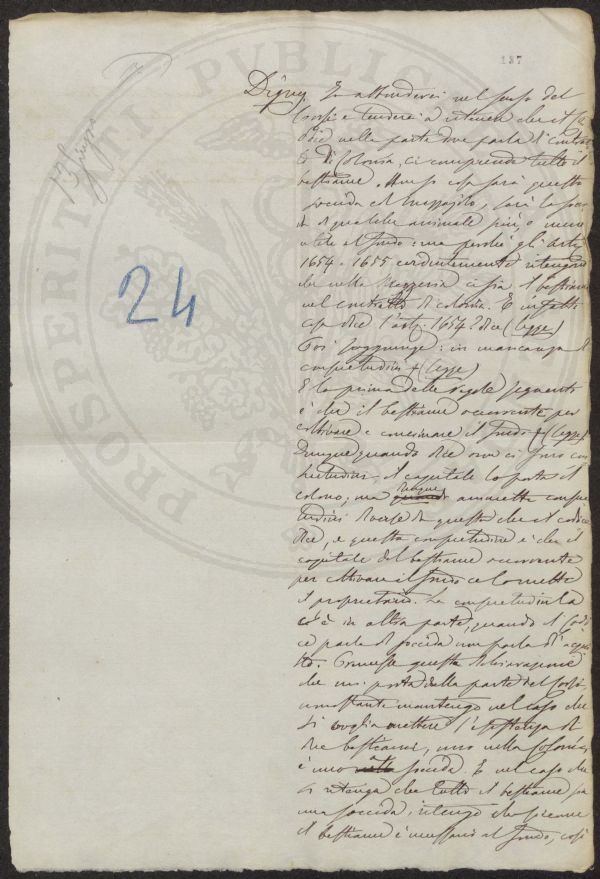 137
Digny. In attenderei nel senso del
Corsi e tenderei a ritenere che il Co
dice nella parte dove parla di contrat
to di Colonia, ci comprende tutto il
bestiame. cosa sarà questa
soccida del mezzajolo, sarà la socci
da di qualche animale più, o meno
utile al fondo: ma perché gli artⁱ
1654 - 1655 evidentemente ritengono
che nella Mezzeria ci sia il bestiame
nel contratto di colonia. E infatti
cosa dice l'art. 1654? dice (legge)
Poi soggiunge: in mancanza di
consuetudini + (legge)
E la prima delle regole seguenti
è che il bestiame occorrente per
coltivare e concimare il fondo + (legge)
Dunque quando dice ove ci sono con
suetudini, il capitale lo porta il
colono; ma dunque ammette consue
tudini diverse da questa che il codice
dice, e questa consuetudine è che il
capitale del bestiame occorrente
per coltivare il fondo ce lo mette
il proprietario. La consuetudin la
c'è in altra parte, quando il Codi
ce parla di soccida non parla di acqui
sto. Premessa questa dichiarazione
che mi porta dalla parte del Corsi,
nonostante mantengo nel caso che
si voglia mettere l'esistenza di
due bestiami, uno nella Colonia,
e uno soccida. E nel caso che
si ritenga che tutto il bestiame sia
una soccida, ritengo che siccome
il bestiame è annesso al fondo, così
24